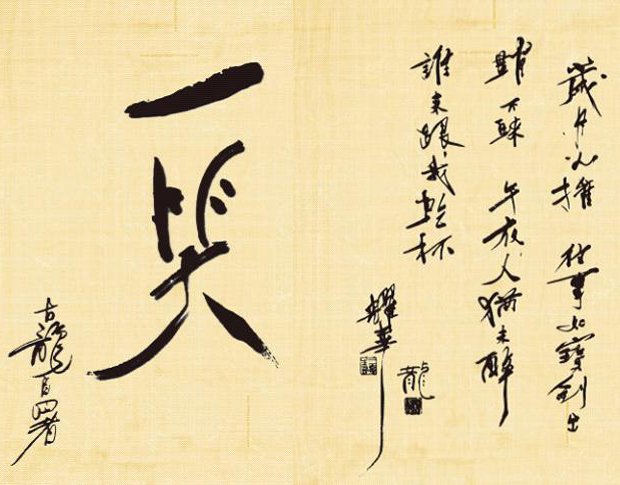 歲月 往事如寶劍出
鞘下 午夜人猶未醉
誰來跟我乾杯
耀華
龍
一笑
古龍自署